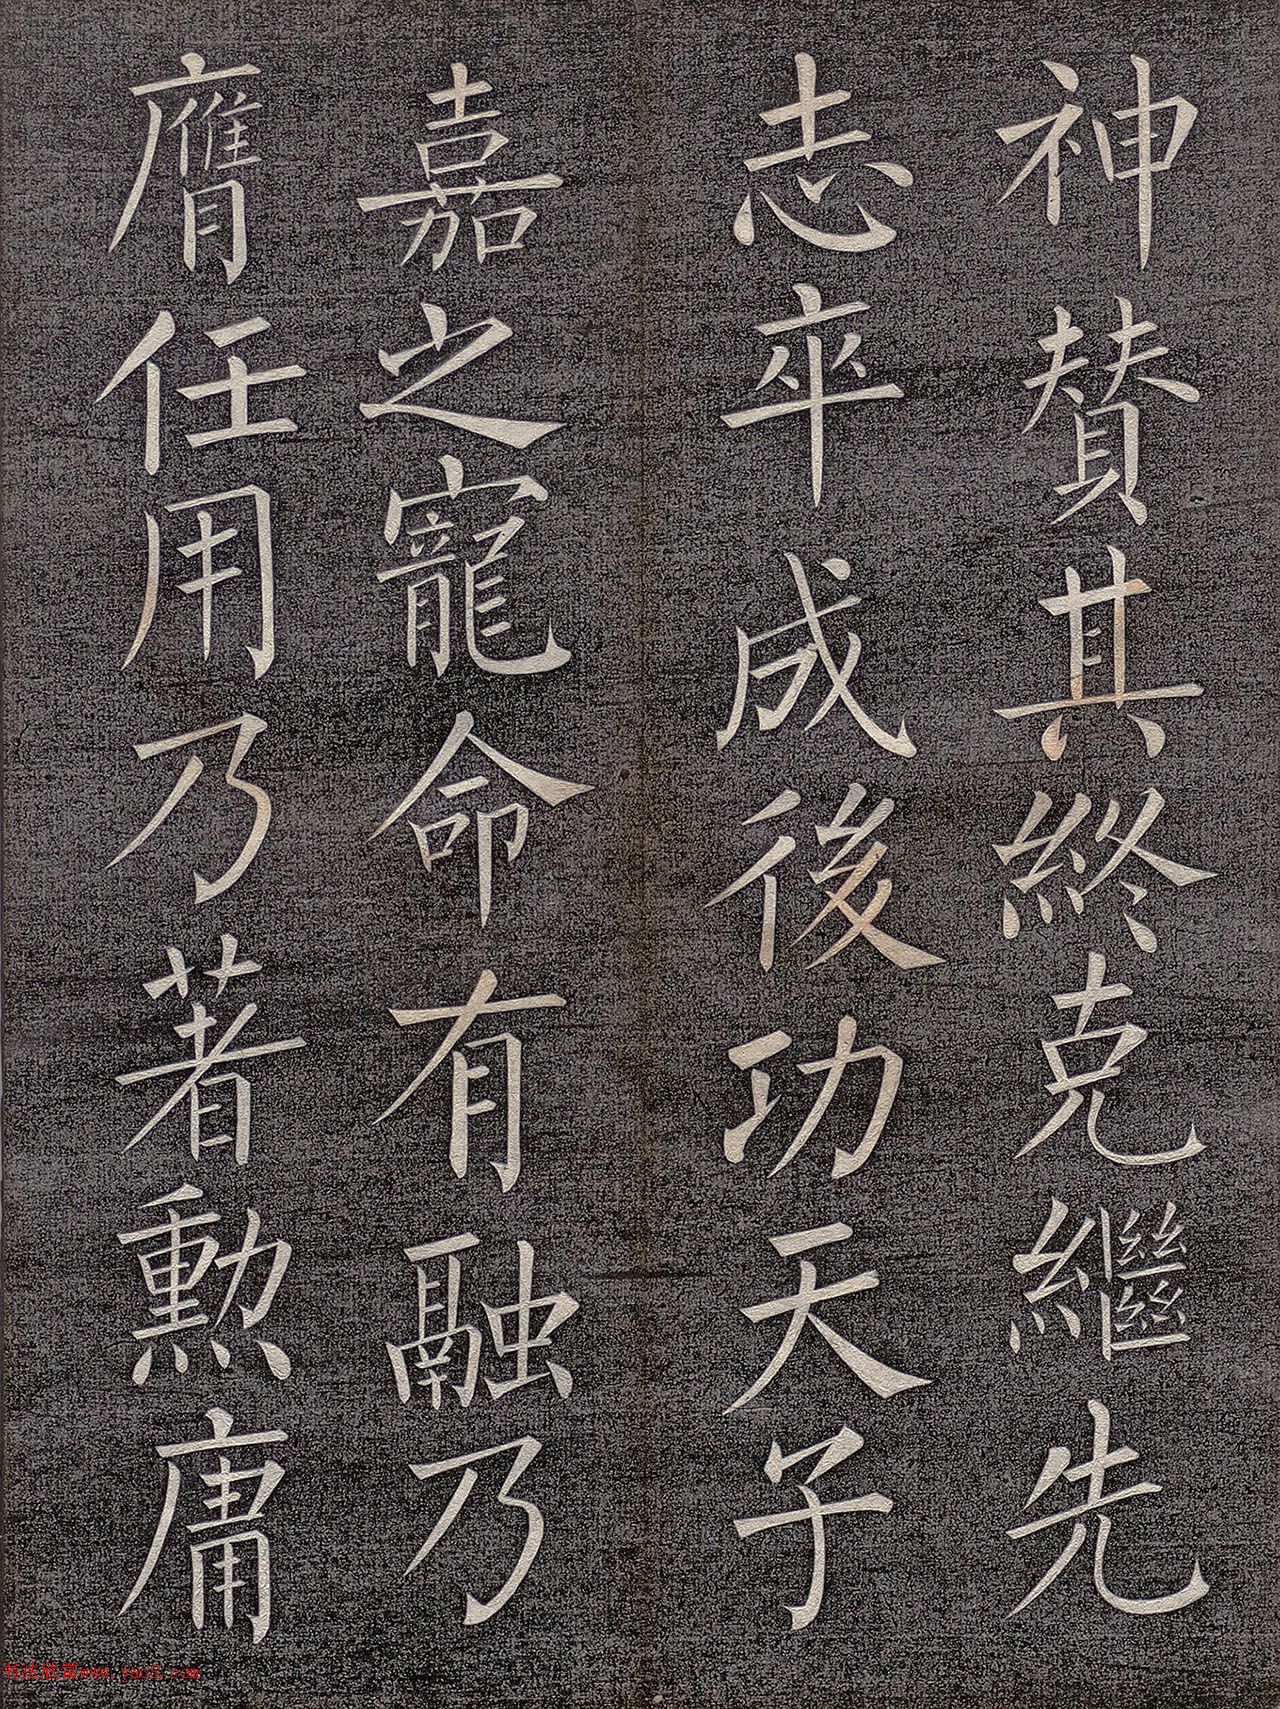 神賛其終克繼先
志卒成後功天子
嘉之寵命有融乃
膺任用乃著勲庸
书法欣赏www.yac8.com